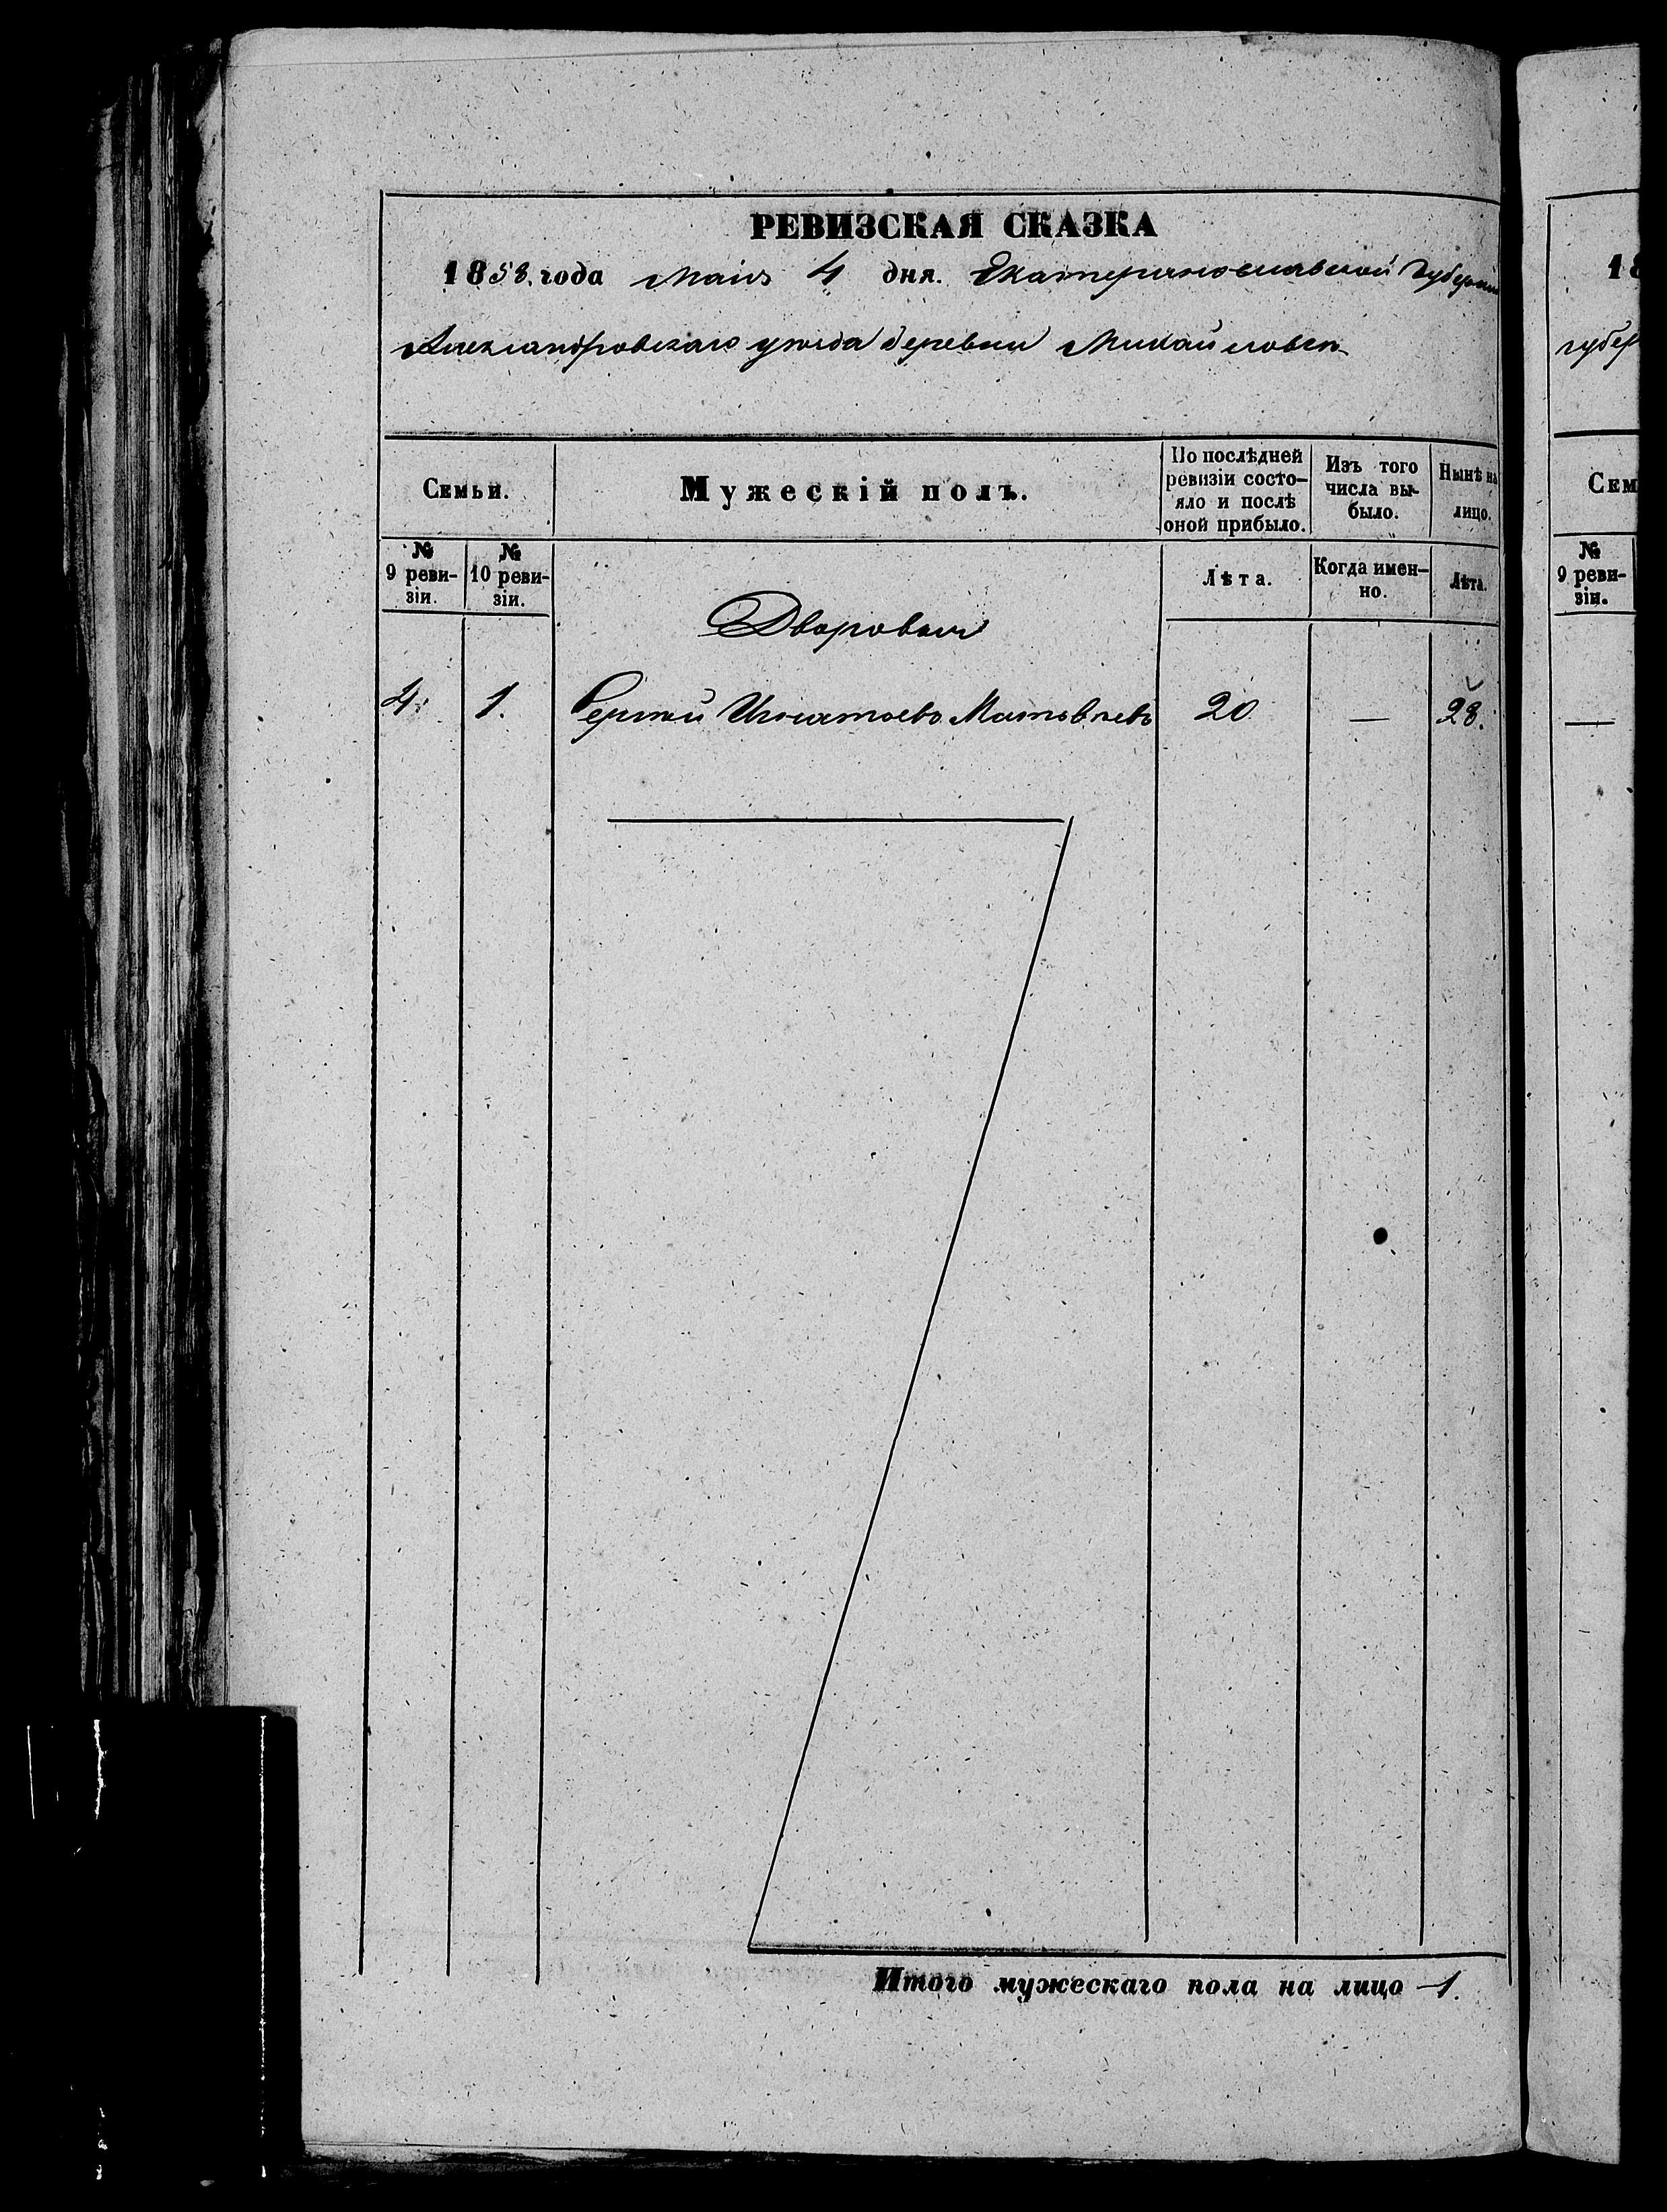 РЕВИЗСКАЯ СКАЗКА
1858. года Маія 4 дня. Екатеринославской Губерніи
Александровскаго уѣзда деревни Михайловки
Семьи.
Мужескій полъ.
По послѣдней ревизіи состо-
яло и послѣ
оной прибыло.
Изъ того
числа вы-
было.
Нынѣ на
лицо.
№
9 реви-
зіи.
№
10 реви-
зіи.
Лѣта.
Когда имен-
но.
Лѣта.
Дворовыи
4.
1.
Сергѣй Игнатьевъ Матвѣевъ
20
—
28.
Итого мужескаго пола на лицо 1.
18
губер
Сем
№
9 реви-
зіи.
—